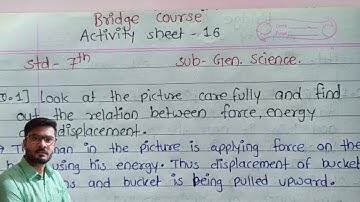 Bridge course
Activity sheet - 16
std - 7th sub - Gen. Science.
.1] Look at the picture carefully and find
out the relation between force, energy
displacement.
man in the picture is applying force on the
using his energy. Thus displacement of bucket
and bucket is being pulled upward.